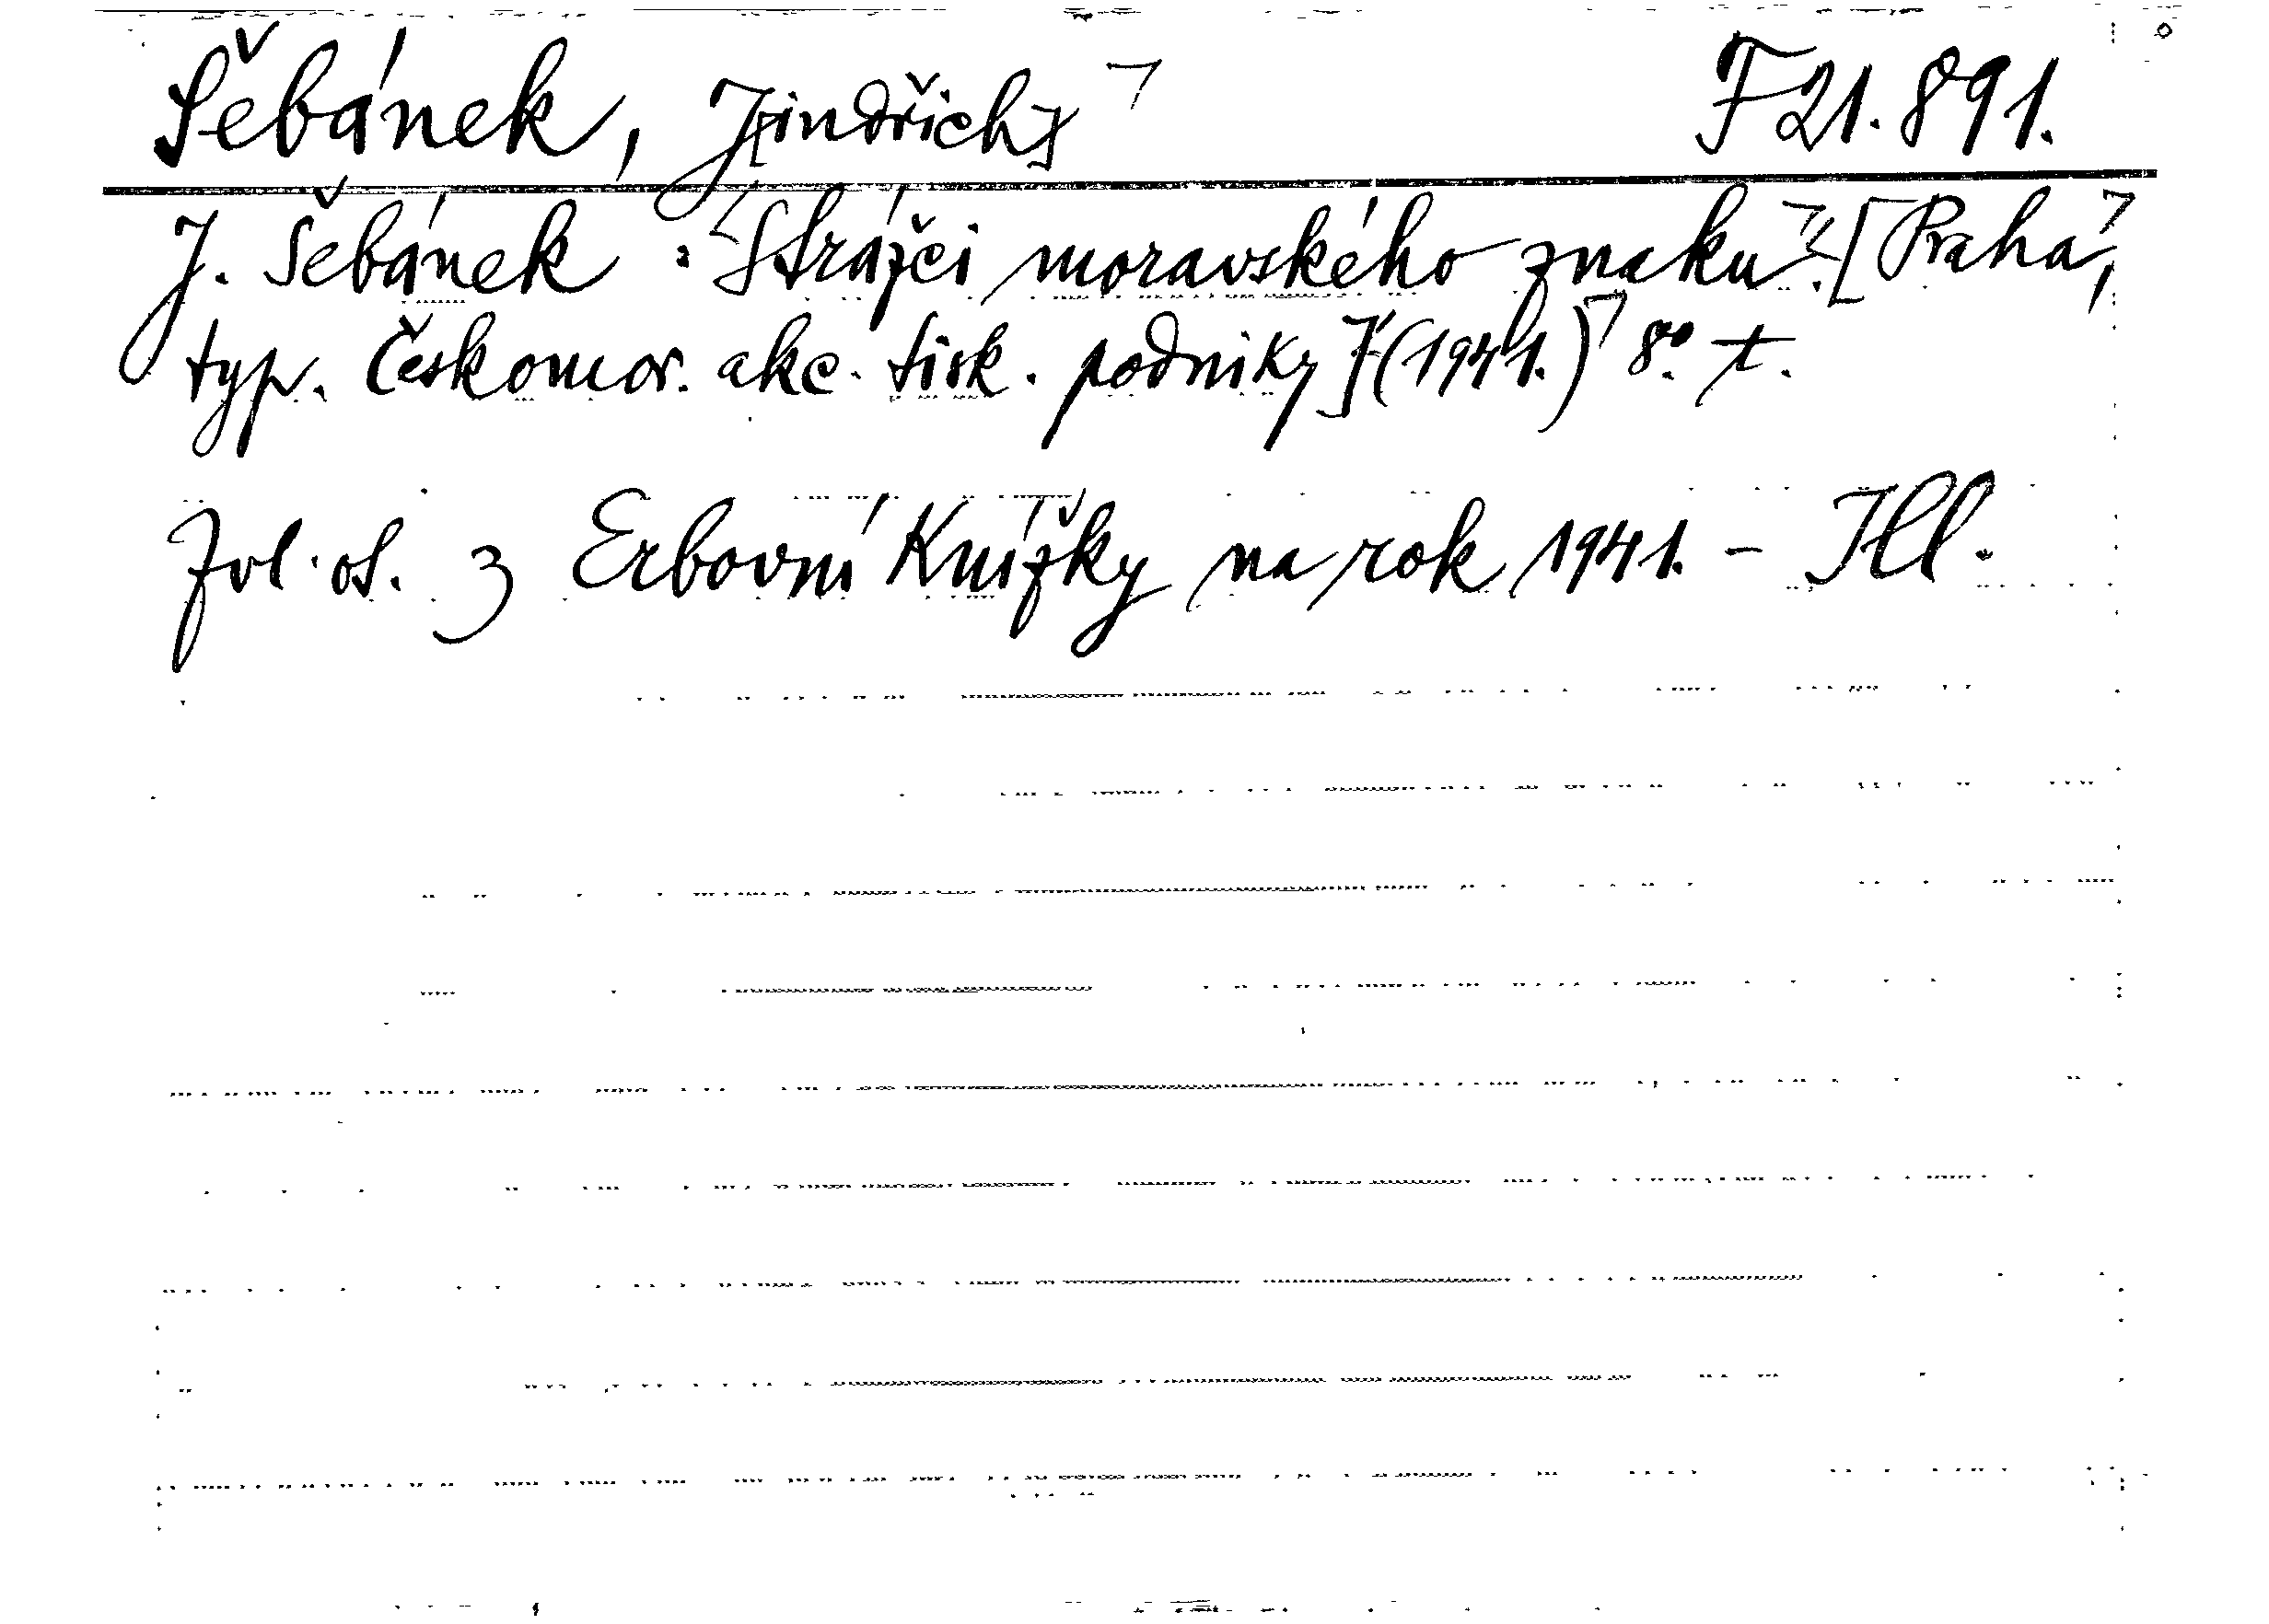 Šebánek, J[indřich] F 21.891.
J. Šebánek: Strážci moravského znaku. [Praha,
typ. Českomor. akc. tisk. podniky] (1941.) 8º. t.
Zvl. ot. z Erbovní Knížky na rok 1941. – Ill.